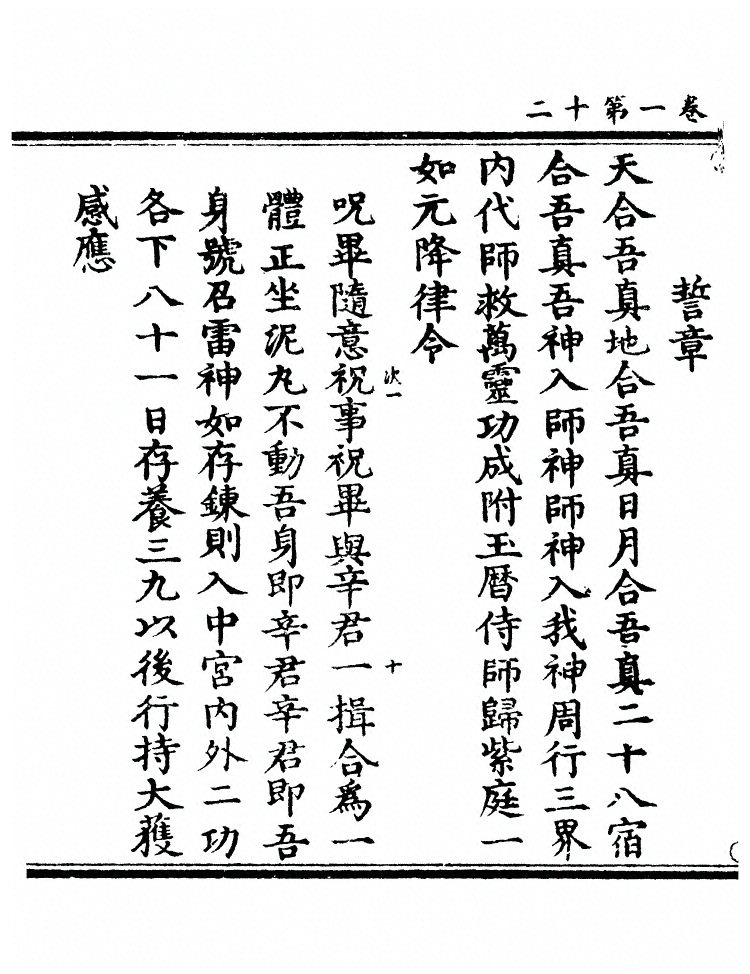 卷一第十二
誓章
天合吾真地合吾真日月合吾真二十八宿
合吾真吾神入師神師神入我神周行三界
内代師救萬靈功成附玉曆侍師歸紫庭一
如元降律令
次一
十
呪畢隨意祝事祝畢與辛君一揖合爲一
體正坐泥丸不動吾身即辛君辛君即吾
身號召雷神如存鍊則入中宮内外二功
各下八十一日存養三九以後行持大獲
感應